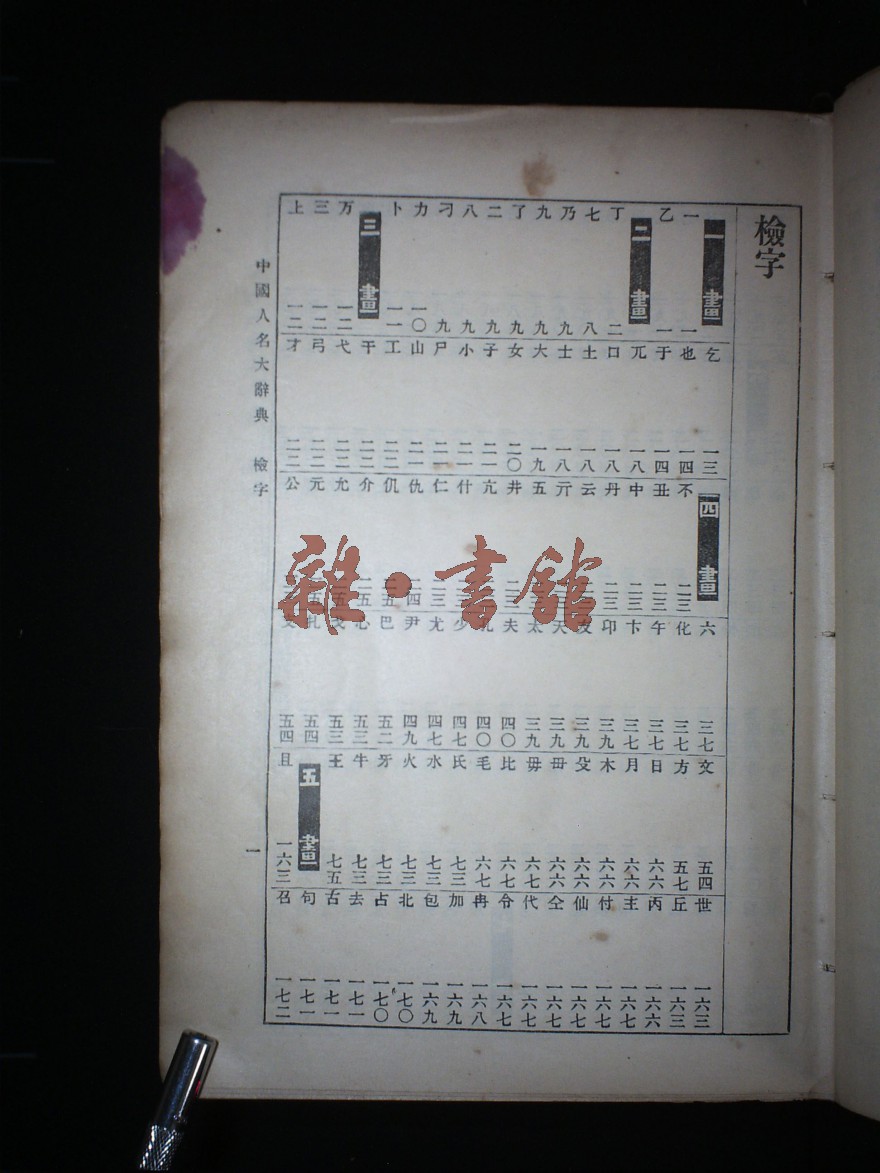 檢字
一畫
一 一
乙 一
二畫
丁 二
七 八
乃 九
九 九
了 九
二 九
八 九
刁 九
力 一〇
卜 一一
三畫
万 一二
三 一二
上 一二
乞 一三
也 一四
于 一四
兀 一八
口 一八
土 一八
士 一八
大 一九
女 二〇
子 二一
小 二一
尸 二一
山 二一
工 二二
干 二二
弋 二二
弓 二二
才 二二
四畫
不 二三
丑 二三
中 二三
丹 二三
云
亓
五
井
亢
什
仁 二三
仇 二四
仉 二五
介 二五
允
元
公
六 三七
化 三七
午 三七
卞 三七
卬 三九
友 三九
天 三九
太 三九
夫 四〇
孔 四〇
少 四七
尤 四七
尹 四九
巴 五二
心 五三
戈 五三
扎 五四
支 五四
文 五四
方 五七
日 六六
月 六六
木 六六
殳 六六
毌 六六
毋 六七
比 六七
毛 六七
氏 七三
水 七三
火 七三
牙 七三
牛 七三
王 七五
五畫
且 一六三
世 一六三
丘 一六三
丙 一六六
主 一六七
付 一六七
仙 一六七
仝 一六七
代 一六七
令 一六七
冉 一六八
加 一六九
包 一六九
北 一七〇
占 一七〇
去 一七一
古 一七一
句 一七一
召 一七二
中國人名大辭典 檢字
一
雜·書館